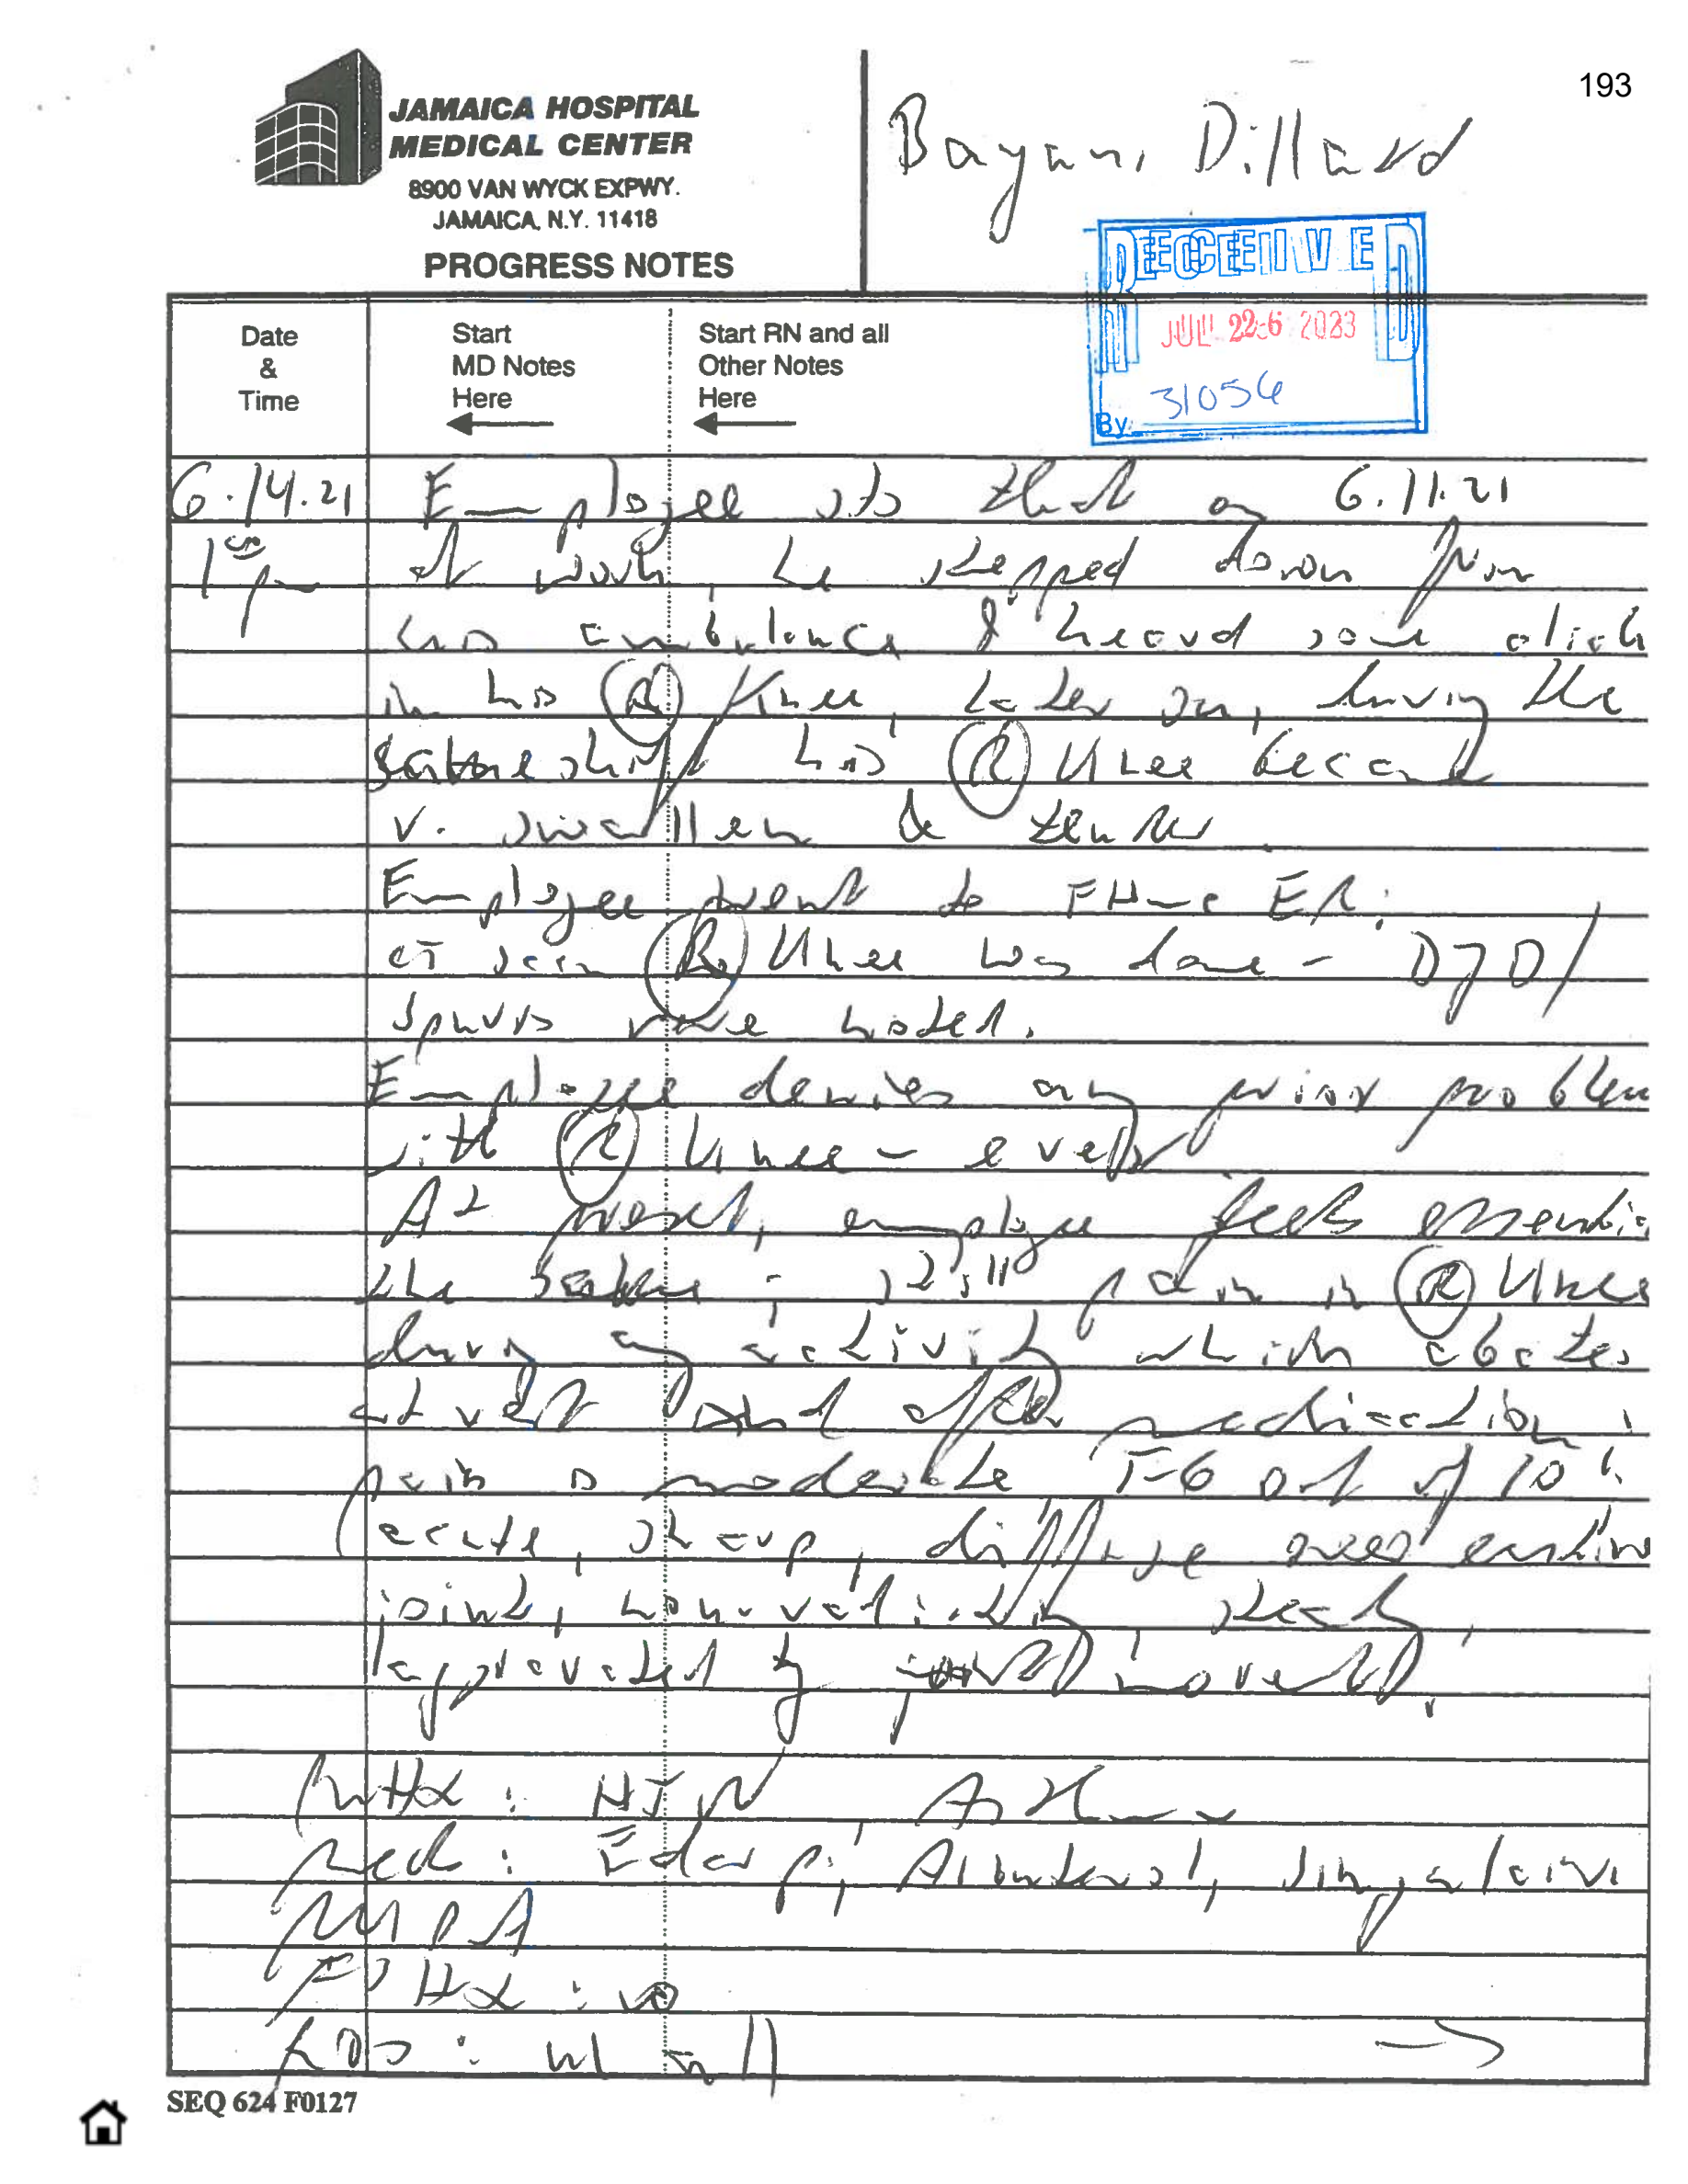 193
JAMAICA HOSPITAL
MEDICAL CENTER
8900 VAN WYCK EXPWY.
JAMAICA, N.Y. 11418
PROGRESS NOTES
Dillard
RECEIVED
2023
31056
By:
Date
&
Time
Start
MD Notes
Here
Start RN and all
Other Notes
Here
6.14.21 Employee sts that on 6.11.21
1 00 pm at work, he stepped down from
his ambulance & heard some click
in his (R) Knee, Later on, during the
same shift his (R) Knee became
v. swollen & tender.
Employee went to FHMC ER.
CT scan (R) Knee was done - DJD/
spurs were noted.
Employee denies any prior problem
with (R) Knee - ever
At present, employee feels
the same; still pain in (R) Knee
during any activity which abates
at rest and after medication;
pain is moderate 5-6 out of 10
acute, sharp, diffuse over entire
joint, non-radiating, steady,
by
PMHx: HTN, Asthma
Med: Edarbi, Albuterol, Singulair
NKDA
PSHx:
ROS:
SEQ 624 F0127